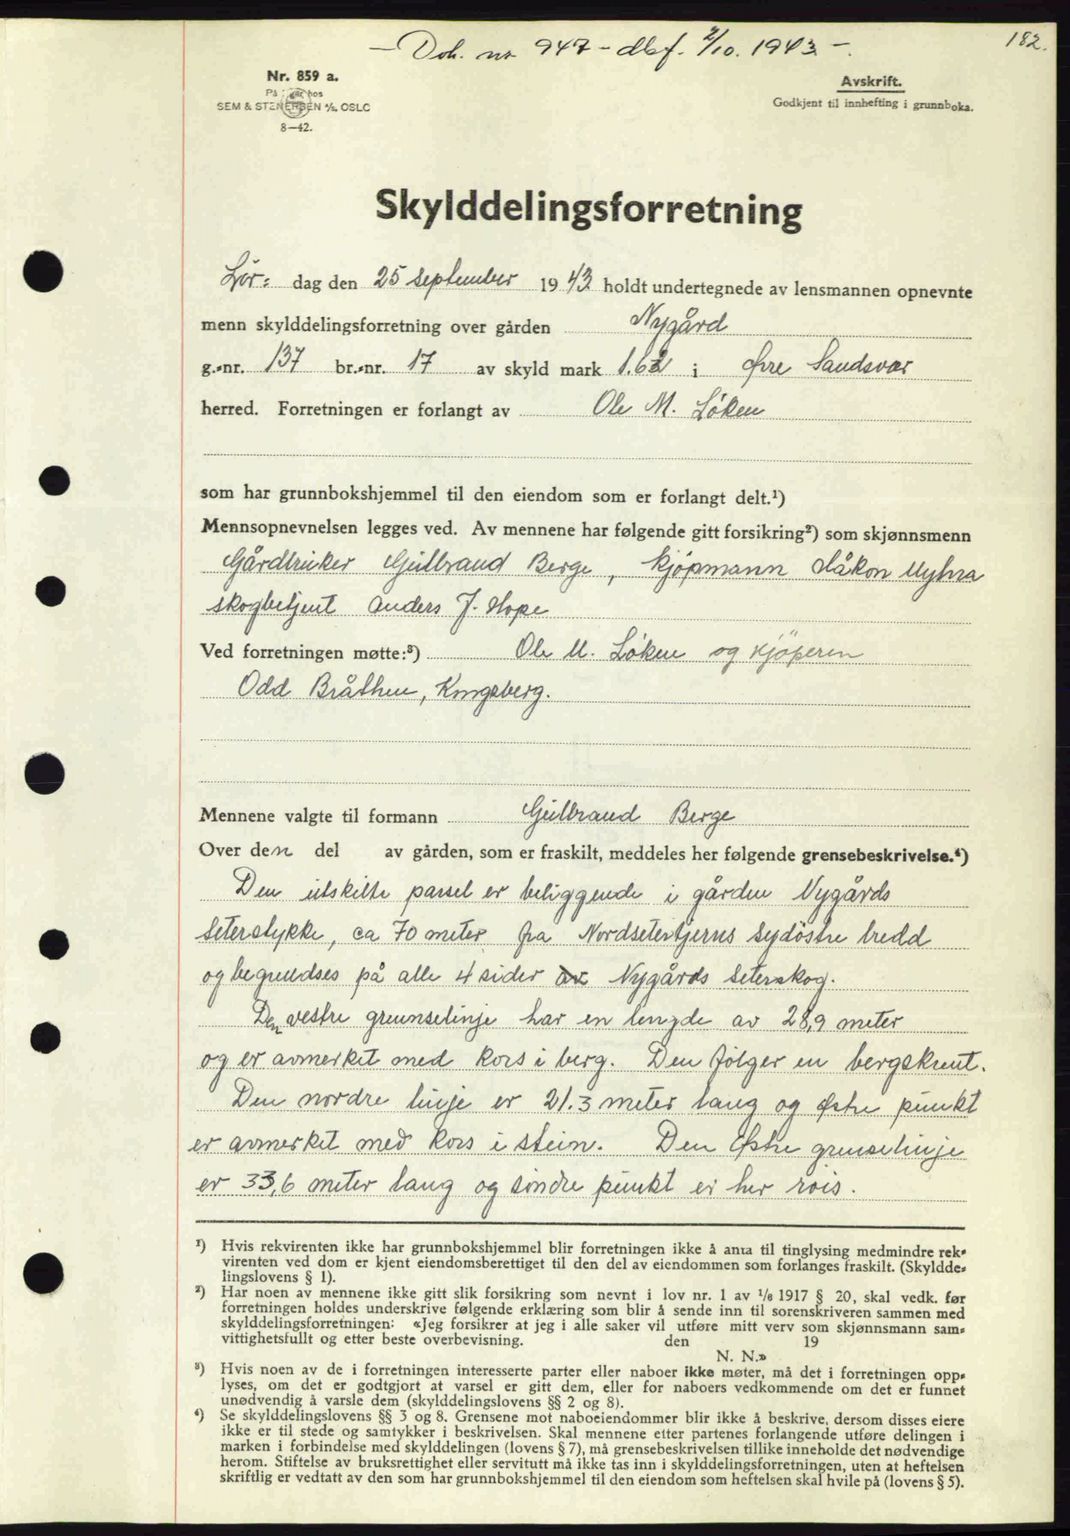 — Dok. nr 947 – dbf. 2/10. 1943 —.
182.
Nr. 859 a.
Avskrift.
På lager hos
Godkjent til innhefting i grunnboka.
SEM & STENERSEN A/S, OSLO
8—42.
Skylddelingsforretning
Lör= dag den 25 september 1943 holdt undertegnede av lensmannen opnevnte
menn skylddelingsforretning over gården Nygård
g.-nr. 137 br.-nr. 17 av skyld mark 1.62 i Øvre Sandsvær
herred. Forretningen er forlangt av Ole M. Løken
som har grunnbokshjemmel til den eiendom som er forlangt delt.¹)
Mennsopnevnelsen legges ved. Av mennene har følgende gitt forsikring²) som skjønnsmenn
Gårdbruker Gulbrand Berge, kjøpmann Håkon Myhra
skogbetjent Anders J. Hope
Ved forretningen møtte:³) Ole M. Løken og kjöperen
Odd Bråthen, Kongsberg.
Mennene valgte til formann Gulbrand Berge
Over den del av gården, som er fraskilt, meddeles her følgende grensebeskrivelse.⁴)
Den utskilte parsel er beliggende i gården Nygårds
seterstykke, ca 70 meter fra Nordsetertjerns sydöstre bredd
og begrendses på alle 4 sider av Nygårds seterskog.
Den vestre grenselinje har en lengde av 28,9 meter
og er avmerket med kors i berg. Den følger en bergskrent.
Den nordre linje er 21.3 meter lang og østre punkt
er avmerket med kors i stein. Den østre grenselinje
er 33,6 meter lang og söndre punkt er her røis.
¹) Hvis rekvirenten ikke har grunnbokshjemmel blir forretningen ikke å anta til tinglysing medmindre rek-
virenten ved dom er kjent eiendomsberettiget til den del av eiendommen som forlanges fraskilt. (Skyldde-
lingslovens § 1).
²) Har noen av mennene ikke gitt slik forsikring som nevnt i lov nr. 1 av 1/6 1917 § 20, skal vedk. før
forretningen holdes underskrive følgende erklæring som blir å sende inn til sorenskriveren sammen med
skylddelingsforretningen: «Jeg forsikrer at jeg i alle saker vil utføre mitt verv som skjønnsmann sam-
vittighetsfullt og etter beste overbevisning. den 19
N. N.»
³) Hvis noen av de i forretningen interesserte parter eller naboer ikke møter, må det i forretningen opp-
lyses, om det er godtgjort at varsel er gitt dem, eller for naboers vedkommende om det er funnet
unødvendig å varsle dem (skylddelingslovens §§ 2 og 8).
⁴) Se skylddelingslovens §§ 3 og 8. Grensene mot naboeiendommer blir ikke å beskrive, dersom disses eiere
ikke er til stede og samtykker i beskrivelsen. Skal mennene etter partenes forlangende utføre delingen i
marken i forbindelse med skylddelingen (lovens § 7), må grensebeskrivelsen tillike inneholde det nødvendige
herom. Stiftelse av bruksrettighet eller servitutt må ikke tas inn i skylddelingsforretningen, uten at heftelsen
skriftlig er vedtatt av den som har grunnbokshjemmel til den eiendom som heftelsen skal hvile på (lovens § 5).